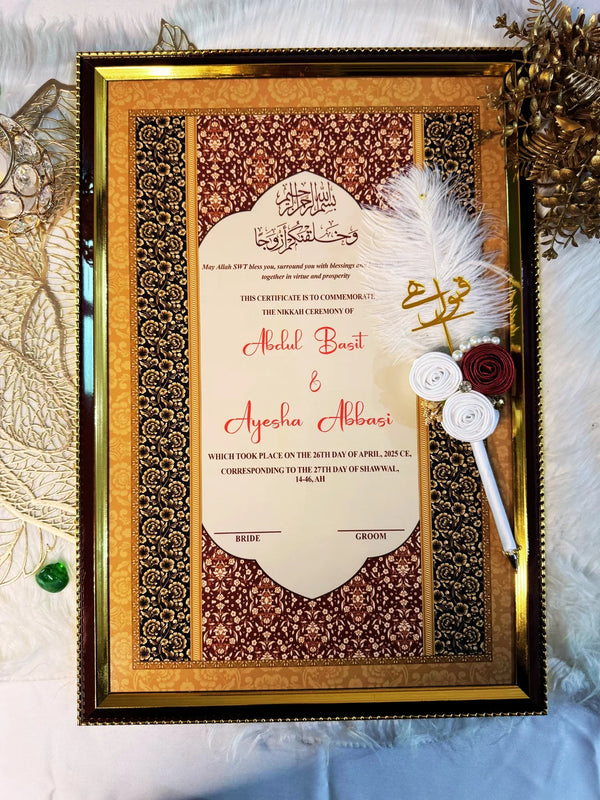 بسم الله الرحمن الرحيم
وخلقنكم أزوجا
May Allah SWT bless you, surround you with blessings
together in virtue and prosperity
THIS CERTIFICATE IS TO COMMEMORATE
THE NIKKAH CEREMONY OF
Abdul Basit
&
Ayesha Abbasi
WHICH TOOK PLACE ON THE 26TH DAY OF APRIL, 2025 CE,
CORRESPONDING TO THE 27TH DAY OF SHAWWAL,
14-46, AH
BRIDE GROOM
قبول ہے